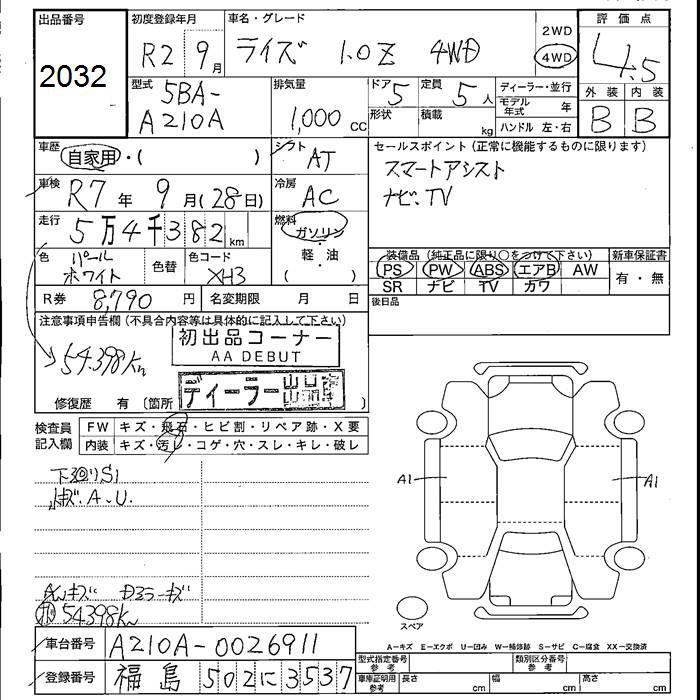 出品番号
2032
初度登録年月
R2 9月
車名・グレード
ライズ 1.0Z 4WD
2WD
4WD
評価点
4.5
外装 内装
B B
型式
5BA-
A210A
排気量
1,000 cc
ドア 5
形状
定員 5人
積載 kg
ディーラー・並行
モデル年式 年
ハンドル 左・右
車歴
自家用・( )
シフト
AT
セールスポイント(正常に機能するものに限ります)
スマートアシスト
ナビ、TV
車検
R7年 9月(28日)
冷房
AC
走行
5万4千382km
燃料
ガソリン
・
軽・油
( )
色
パール
ホワイト
色替
色コード
XH3
装備品(純正品に限り○をつけて下さい)
PS PW ABS エアB AW
SR ナビ TV カワ
新車保証書
有・無
R券 8,790円
名変期限 月 日
後日品
注意事項申告欄(不具合内容等は具体的に記入して下さい)
54398Km
初出品コーナー
AA DEBUT
ディーラー
修復歴 有 〔箇所
検査員
記入欄
FW キズ・飛石・ヒビ割・リペア跡・X要
内装 キズ・汚レ・コゲ・穴・スレ・キレ・破レ
下廻りS1
キズ.A.U.
A1
A1
54398Km
スペア
A−キズ E−エクボ U−凹み W−補修跡 S−サビ C−腐食 XX−交換済
車台番号 A210A-0026911
登録番号 福島 502に3537
型式指定番号
参考
類別区分番号
参考
車庫証明用
参考
長さ cm
幅 cm
高さ cm